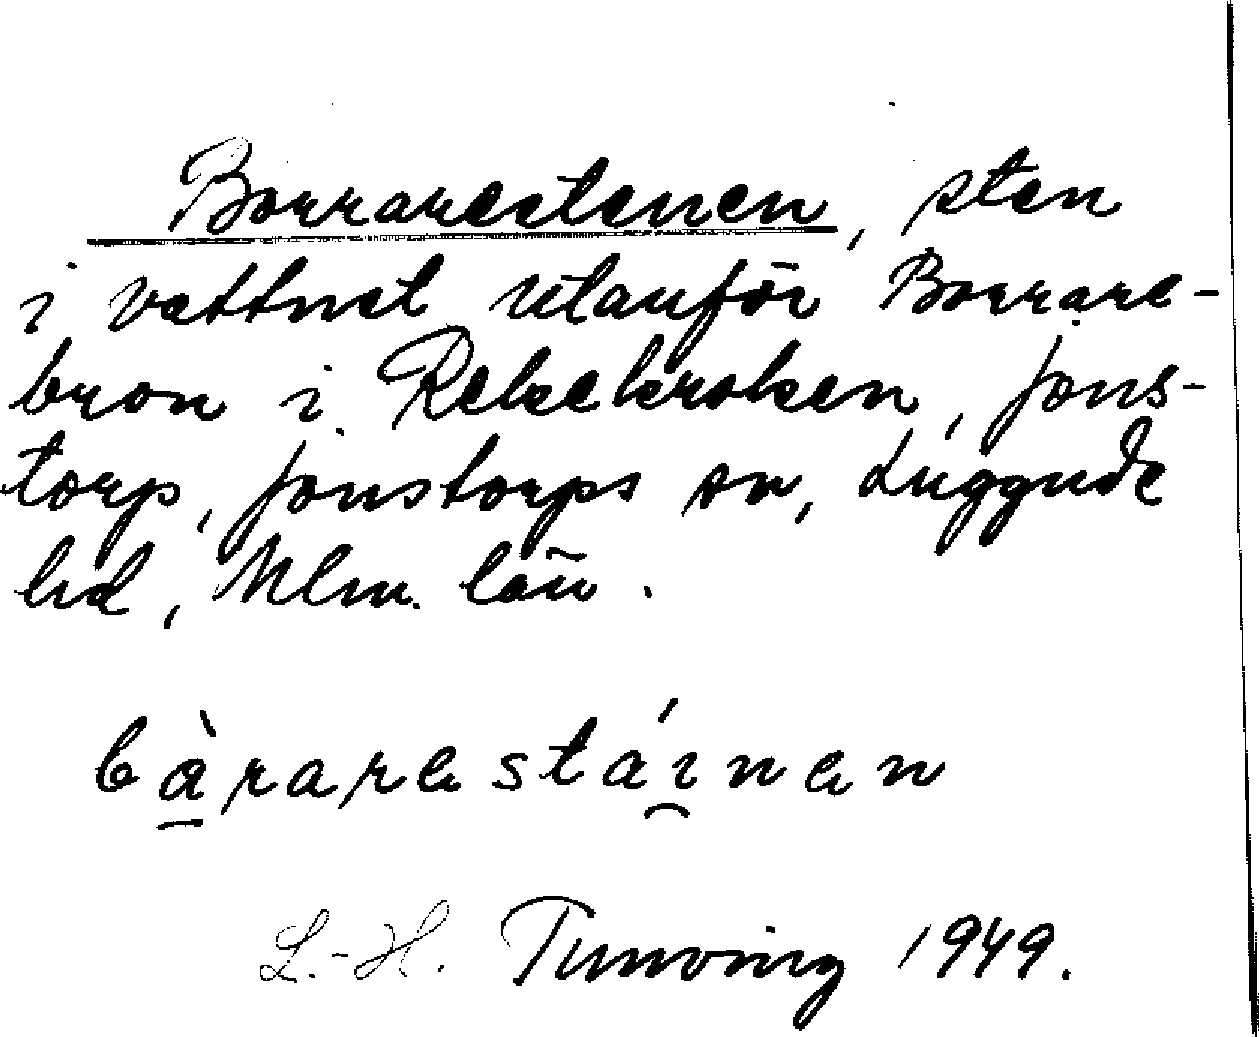 Borrarestenen, sten
i vattnet utanför Borrare-
bron i Rekekroken, Jons-
torp, Jonstorps sn, Luggude
hd, Mlm. län.
bàrarestáinen
L.-H. Tunving 1949.